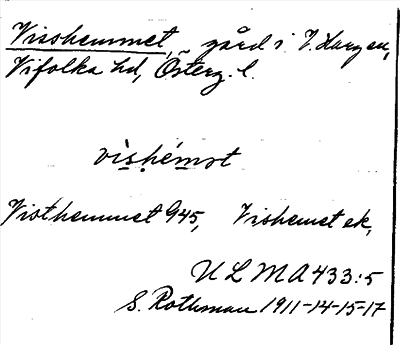 Visshemmet, gård i V. Hargen,
Vifolka hd, Österg. l.
vishémot
Visthemmet 945, Vishemet ek,
ULMA 433:5
S. Rothman 1911-14-15-17